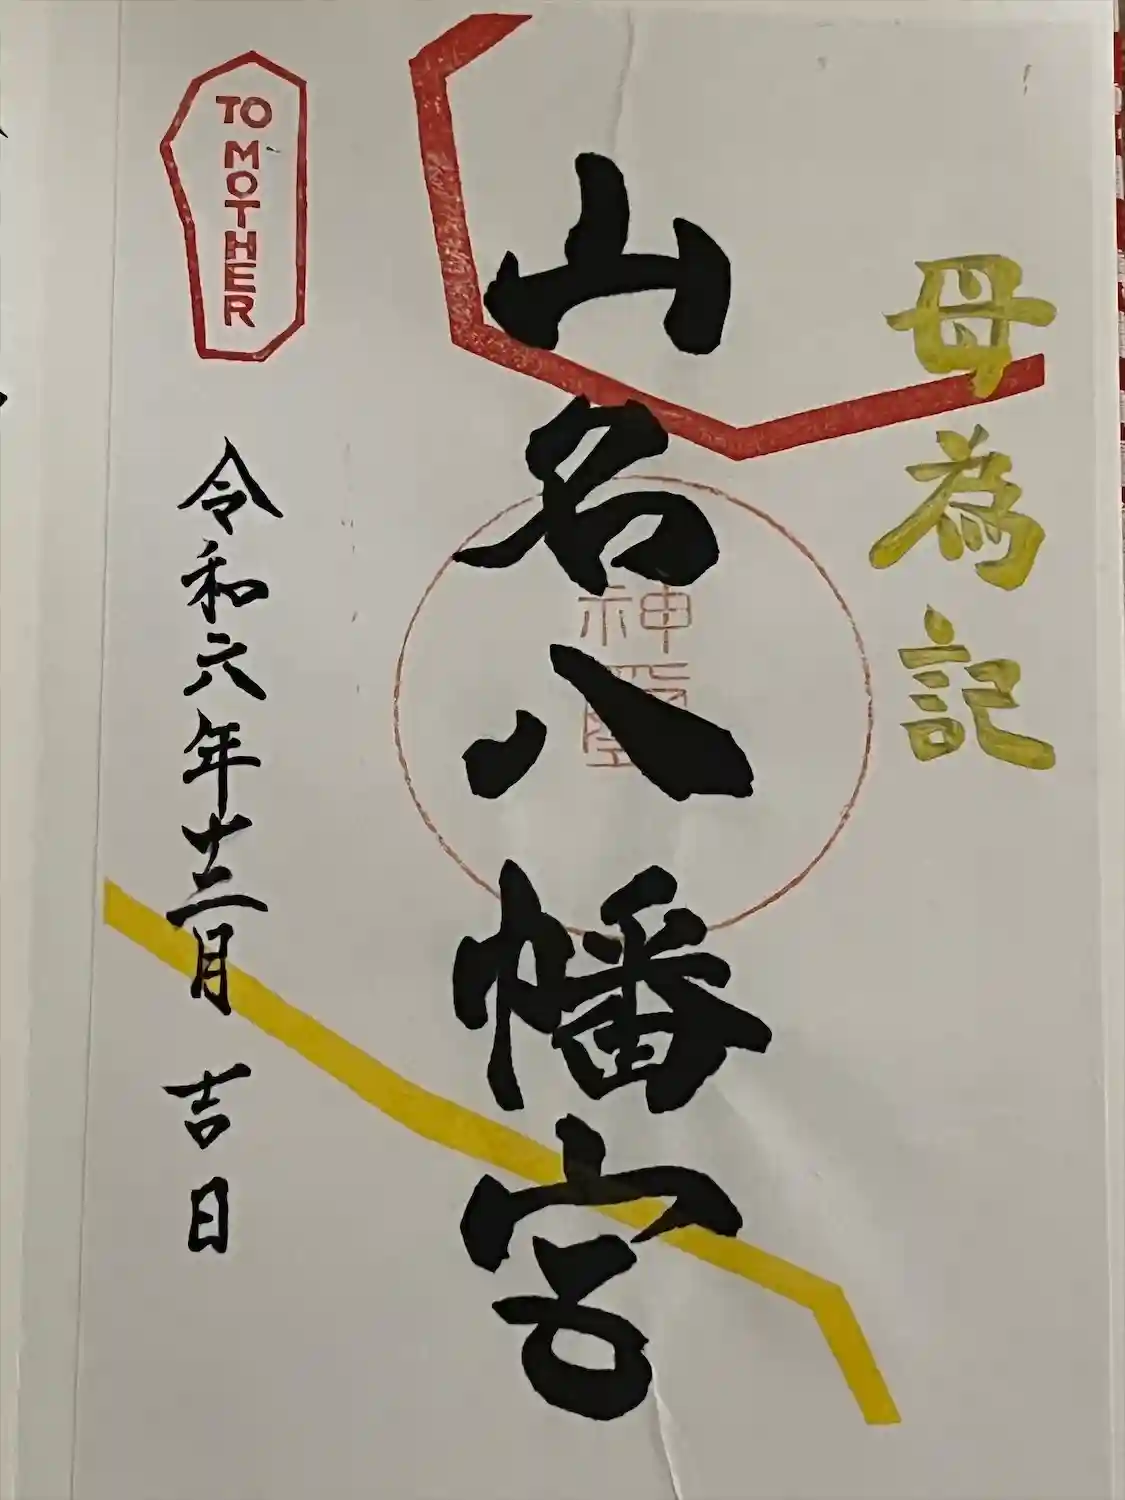 母為記
山名八幡宮
神璽
TO MOTHER
令和六年十二月 吉日